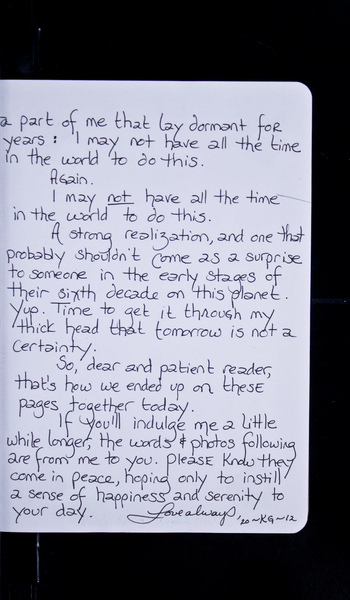 a part of me that lay dormant for
years: I may not have all the time
in the world to do this.
Again.
I may not have all the time
in the world to do this.
A strong realization, and one that
probably shouldn't come as a surprise
to someone in the early stages of
their sixth decade on this planet.
Yup. Time to get it through my
thick head that tomorrow is not a
certainty.
So, dear and patient reader,
that's how we ended up on these
pages together today.
If you'll indulge me a little
while longer, the words & photos following
are from me to you. Please know they
come in peace, hoping only to instill
a sense of happiness and serenity to
your day. Love always, '20~KG~12